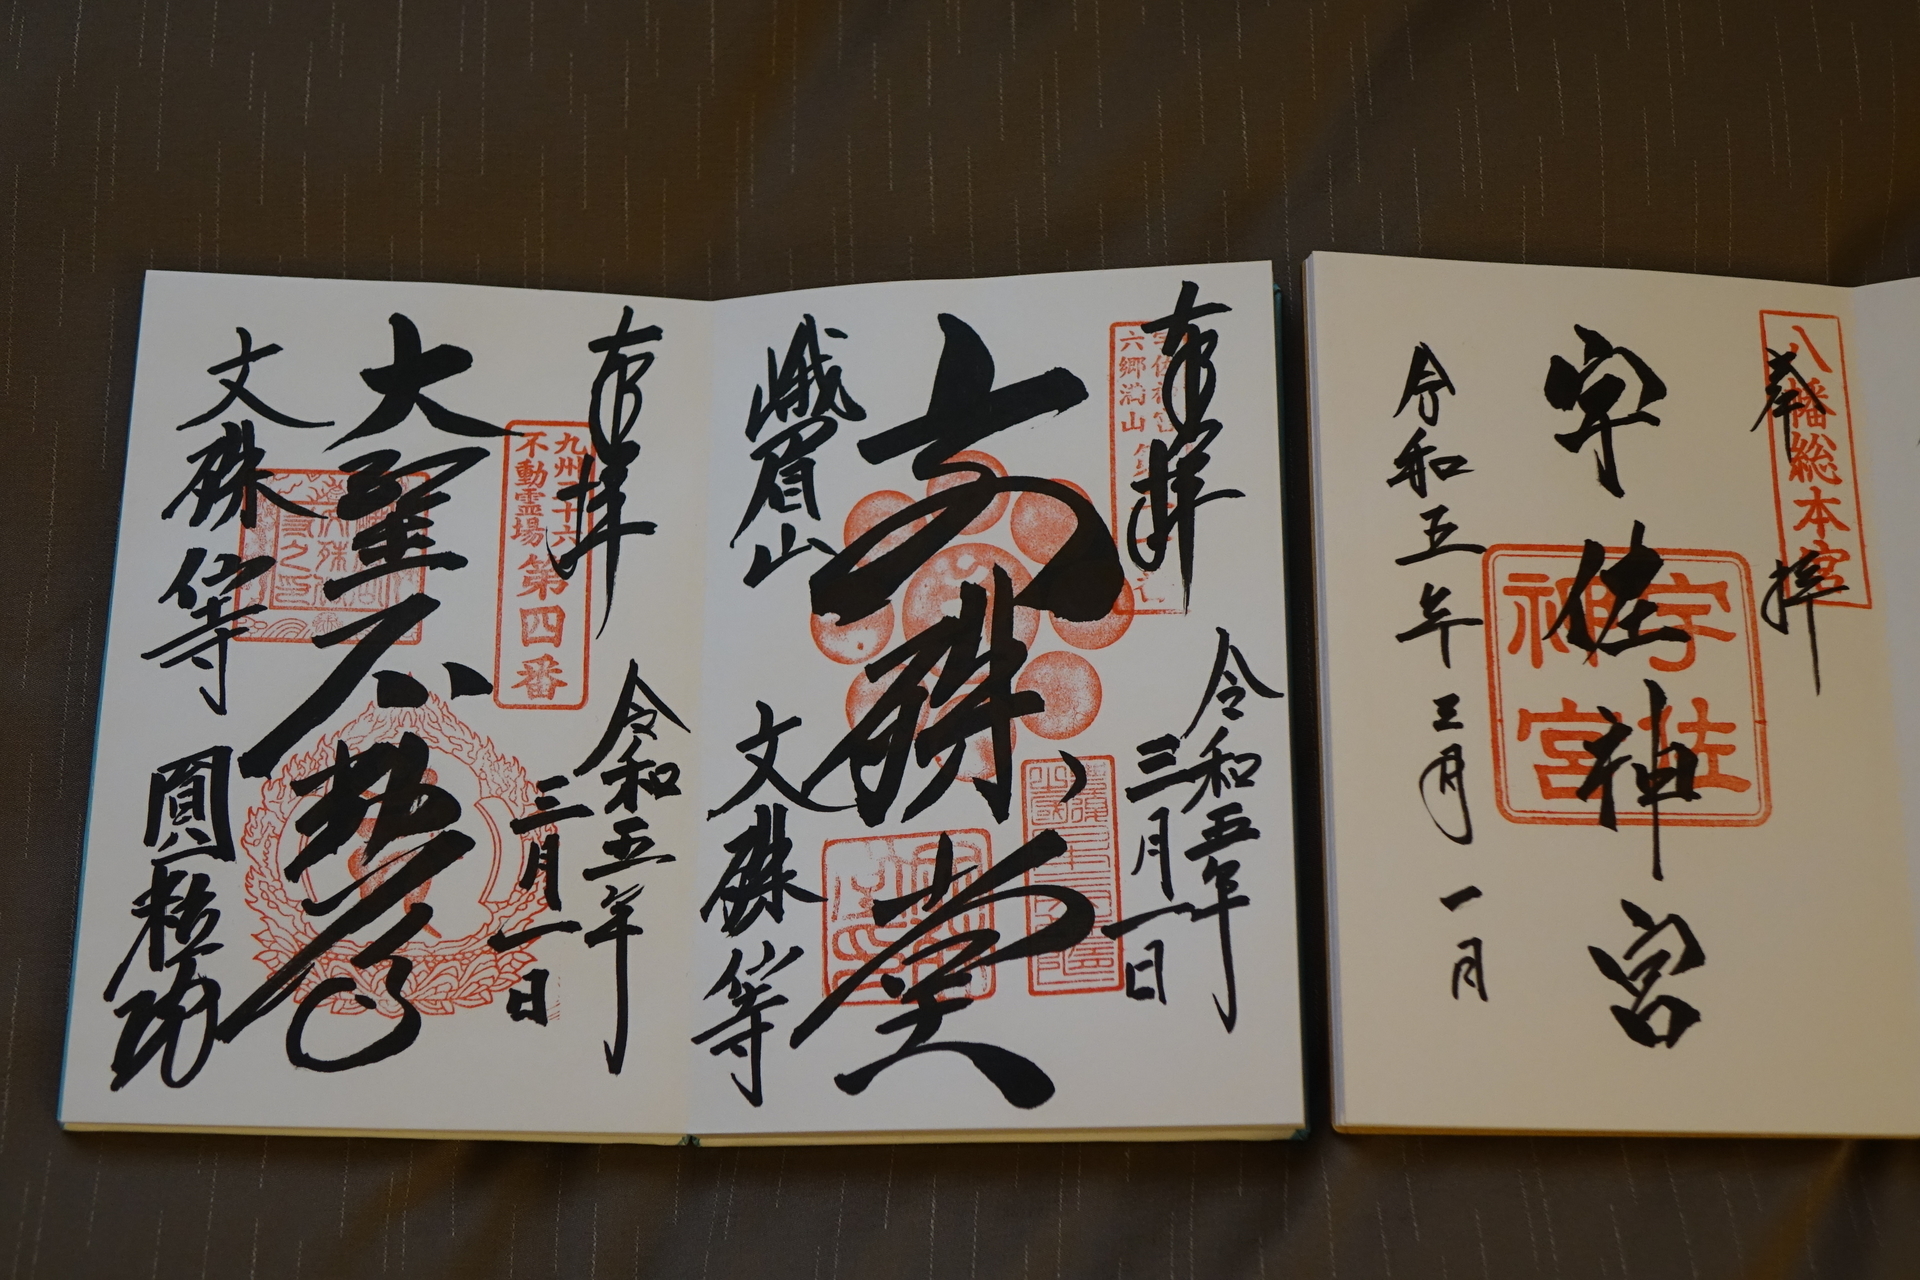 奉拝
八幡総本宮
宇佐神宮
宇佐
神宮
令和五年三月一日
奉拝
令和五年
三月一日
六郷満山
文殊堂
峨眉山
文殊仙寺
奉拝
令和五年
三月一日
九州三十六
不動霊場
第四番
大聖不動尊
文殊仙寺